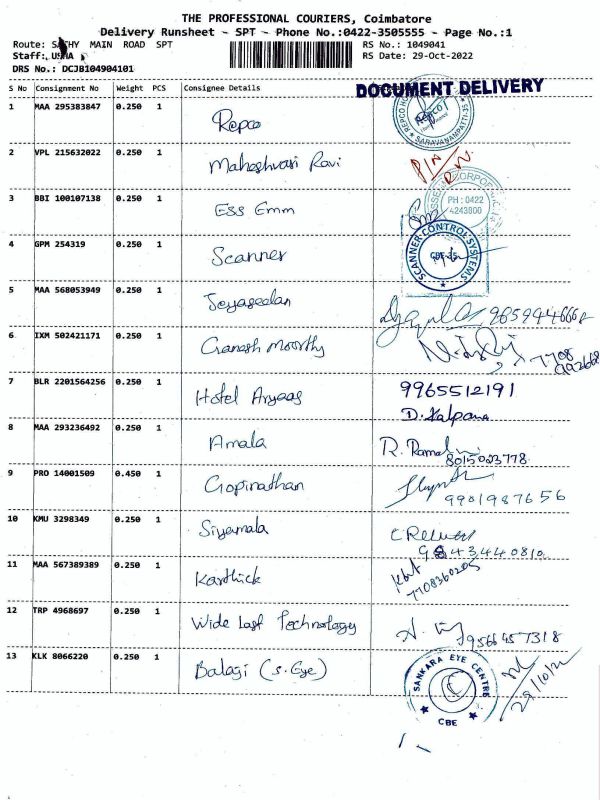 THE PROFESSIONAL COURIERS, Coimbatore
Delivery Runsheet - SPT - Phone No.:0422-3505555 - Page No.:1
Route: SATHY MAIN ROAD SPT
RS No.: 1049041
Staff: USHA
RS Date: 29-Oct-2022
DRS No.: DCJB104904101
S No Consignment No Weight PCS Consignee Details
DOCUMENT DELIVERY
1 MAA 295383847 0.250 1 Repco
REPCO SARAVANAMPATTI-35
2 VPL 215632022 0.250 1 Maheshwari Ravi
3 BBI 100107138 0.250 1 Ess Emm
PH : 0422
4243000
4 GPM 254319 0.250 1 Scanner
SCANNER CONTROL SYSTEMS
CBE-35
5 MAA 568053949 0.250 1 Jeyaseelan
6 IXM 502421171 0.250 1 Ganesh Moorthy
7 BLR 2201564256 0.250 1 Hotel Aryaas 9965512191
D. Kalpana
8 MAA 293236492 0.250 1 Amala R. Ramal
8015023778
9 PRO 14001509 0.450 1 Gopinathan
9901987656
10 KMU 3298349 0.250 1 Siyamala
9843440810
11 MAA 567389389 0.250 1 Karthick
7708360205
12 TRP 4968697 0.250 1 Wide Last Technology
9566457318
13 KLK 8066220 0.250 1 Balaji (S. Eye)
SANKARA EYE CENTRE
CBE
29/10/22